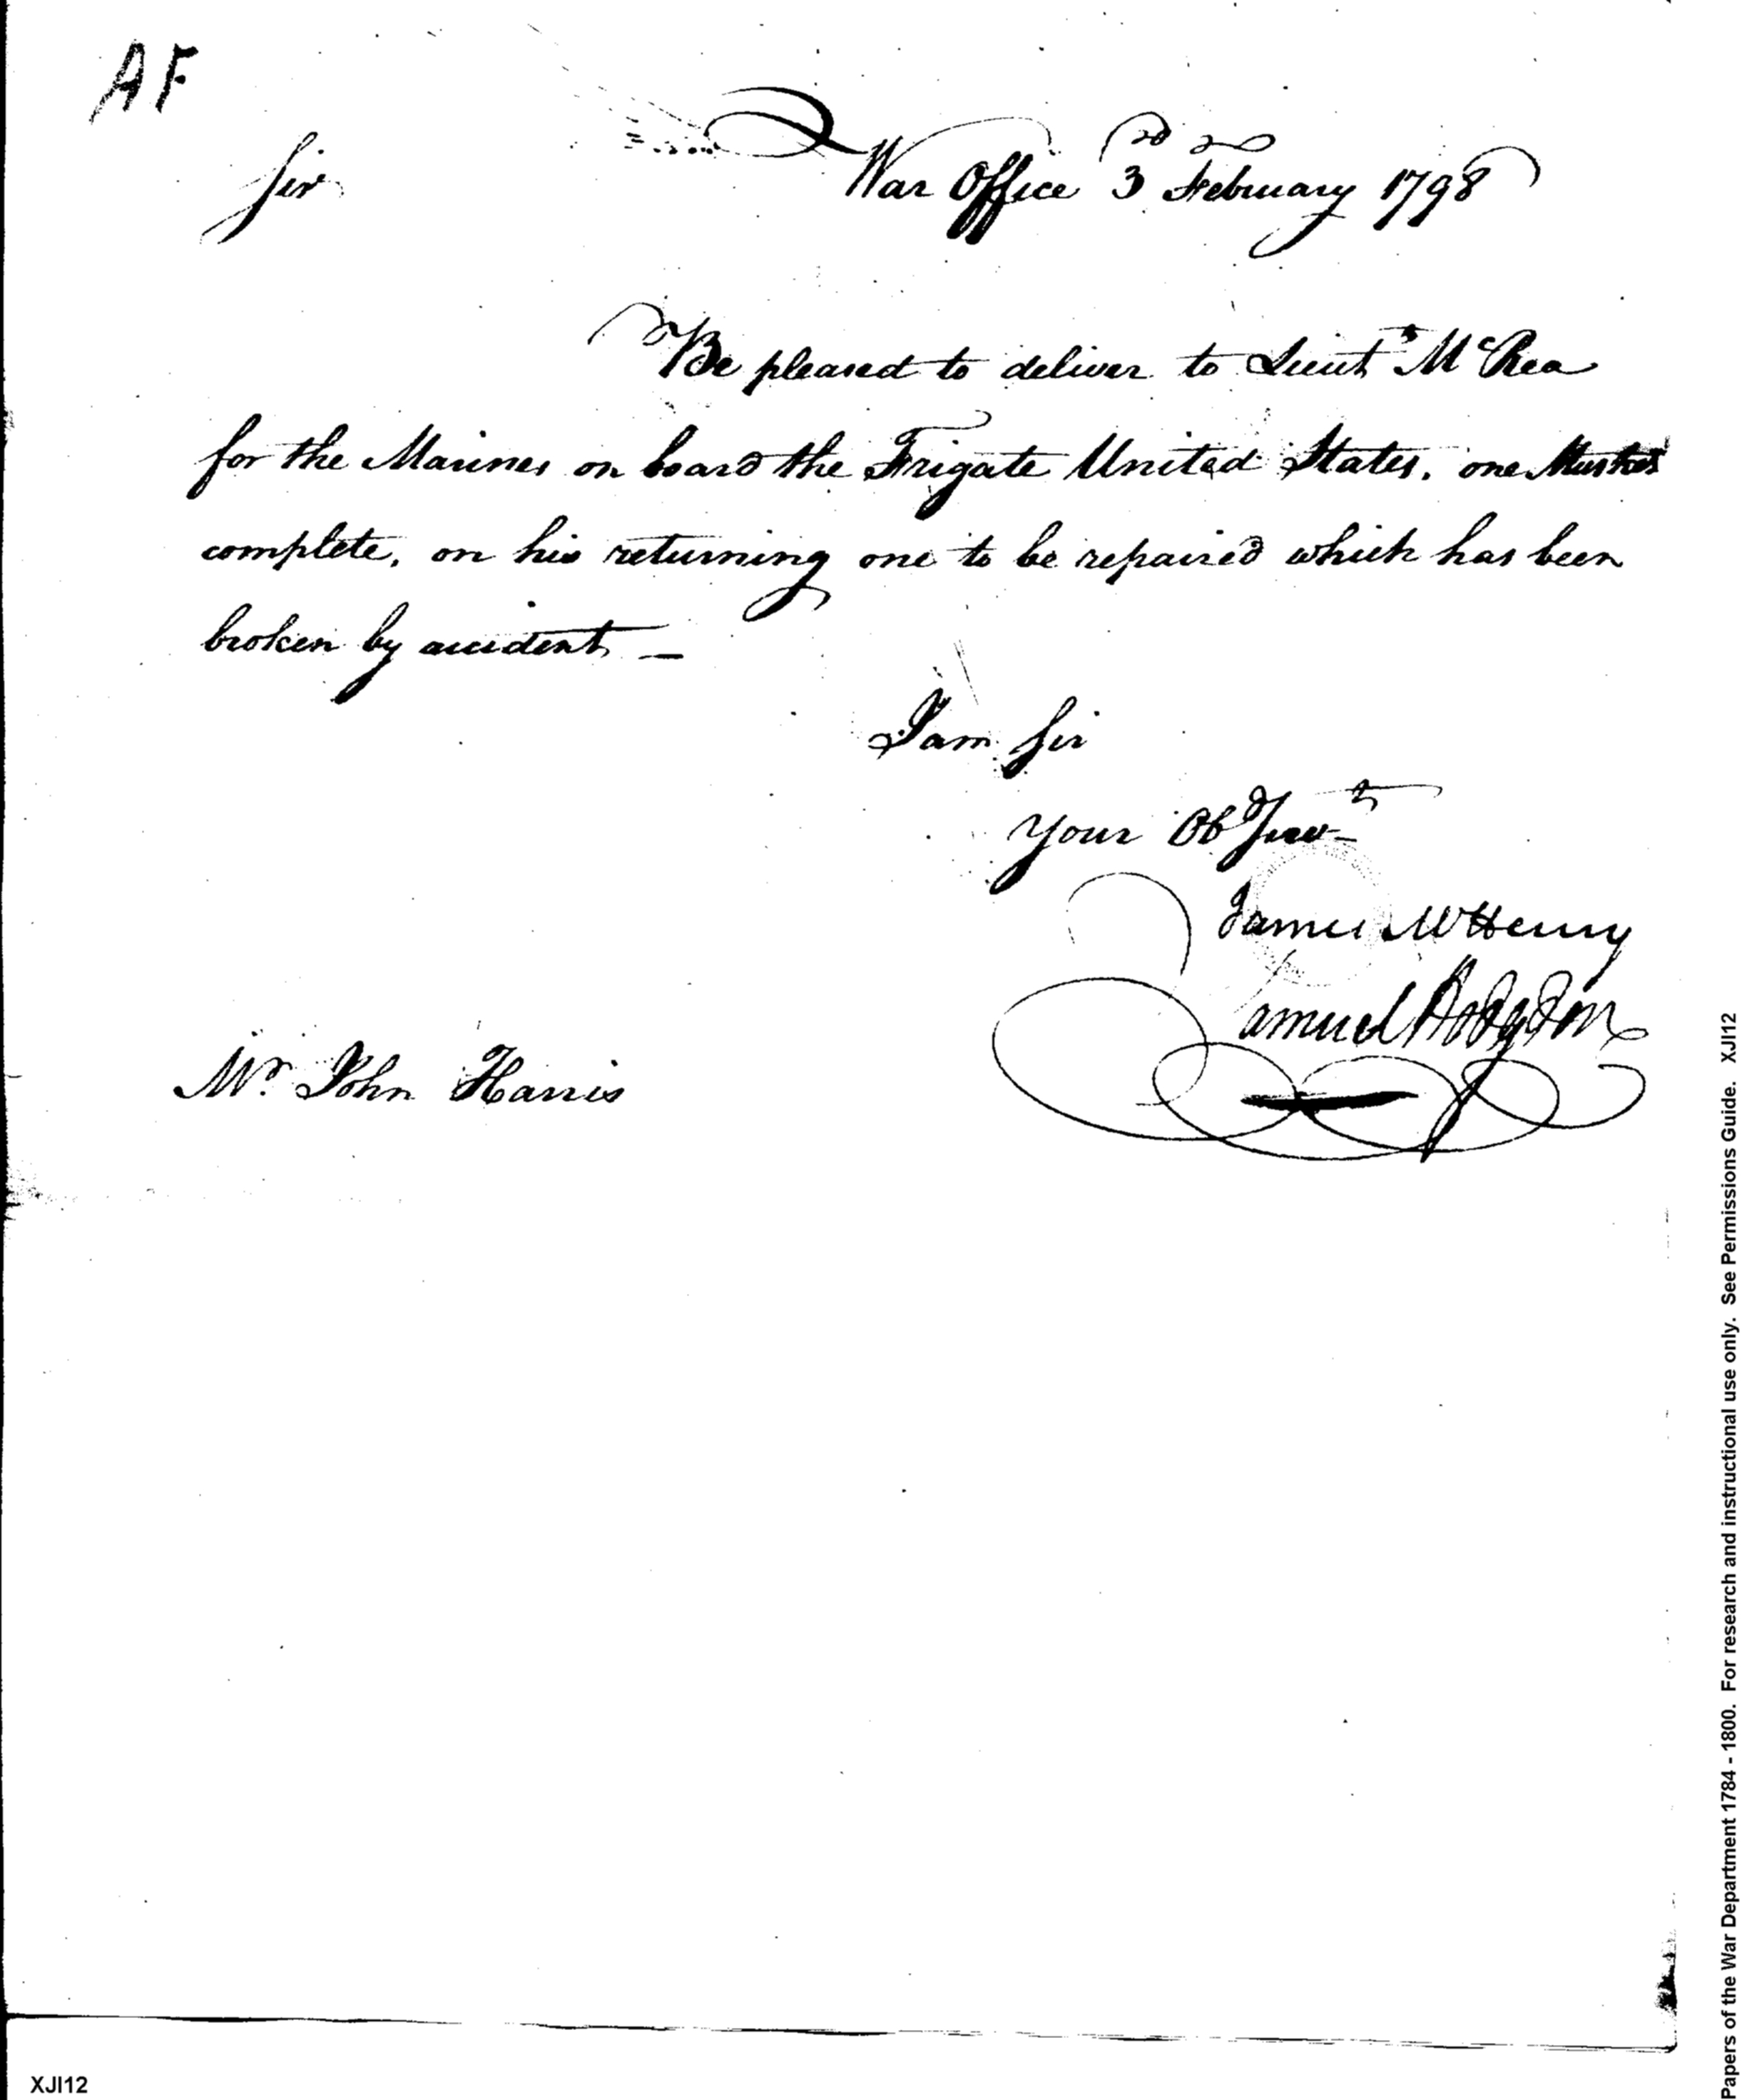 AF
War Office 3d February 1798
Sir
Be pleased to deliver to Lieut McRea
for the Marines on board the Frigate United States, one Musket
complete, on his returning one to be repaired which has been
broken by accident —
I am Sir
Your Ob Serv
James McHenry
Samuel Hodgdon
Mr. John Harris
Papers of the War Department 1784 - 1800. For research and instructional use only. See Permissions Guide. XJI12
XJI12